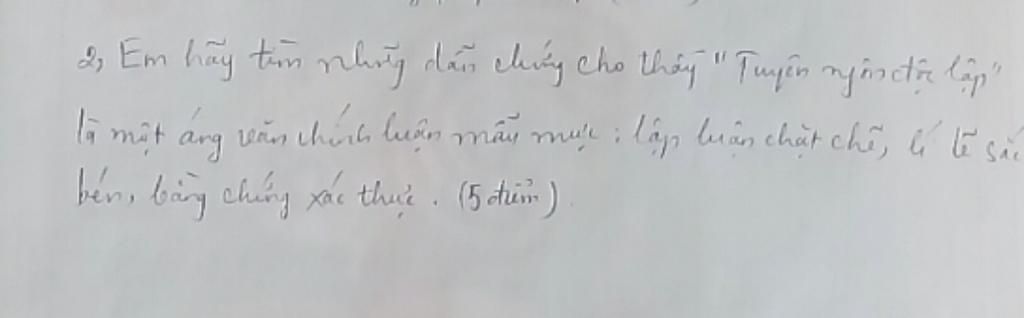 2, Em hãy tìm những dẫn chứng cho thấy "Tuyên ngôn độc lập"
là một áng văn chính luận mẫu mực : lập luận chặt chẽ, lí lẽ sắc
bén, bằng chứng xác thực. (5 điểm).